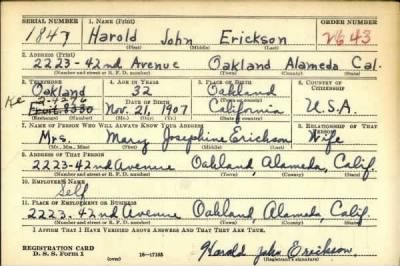 SERIAL NUMBER 1. NAME (Print) ORDER NUMBER
1847 Harold John Erickson V643
(First) (Middle) (Last)
2. ADDRESS (Print)
2223-42nd Avenue Oakland Alameda Cal.
(Number and street or R. F. D. number) (Town) (County) (State)
3. TELEPHONE 4. AGE IN YEARS 5. PLACE OF BIRTH 6. COUNTRY OF CITIZENSHIP
Oakland 32 Oakland
Ke
DATE OF BIRTH (Town or county)
Fruit 8330 Nov. 21, 1907 California U.S.A.
(Exchange) (Number) (Mo.) (Day) (Yr.) (State or country)
7. NAME OF PERSON WHO WILL ALWAYS KNOW YOUR ADDRESS 8. RELATIONSHIP OF THAT PERSON
Mrs. Mary Josephine Erickson Wife
(Mr., Mrs., Miss) (First) (Middle) (Last)
9. ADDRESS OF THAT PERSON
2223-42nd Avenue Oakland, Alameda, Calif.
(Number and street or R. F. D. number) (Town) (County) (State)
10. EMPLOYER'S NAME
Self
11. PLACE OF EMPLOYMENT OR BUSINESS
2223. 42nd Avenue Oakland, Alameda, Calif.
(Number and street or R. F. D. number) (Town) (County) (State)
I AFFIRM THAT I HAVE VERIFIED ABOVE ANSWERS AND THAT THEY ARE TRUE.
REGISTRATION CARD
D. S. S. Form 1 (over) 16-17105 Harold John Erickson
(Registrant's signature)